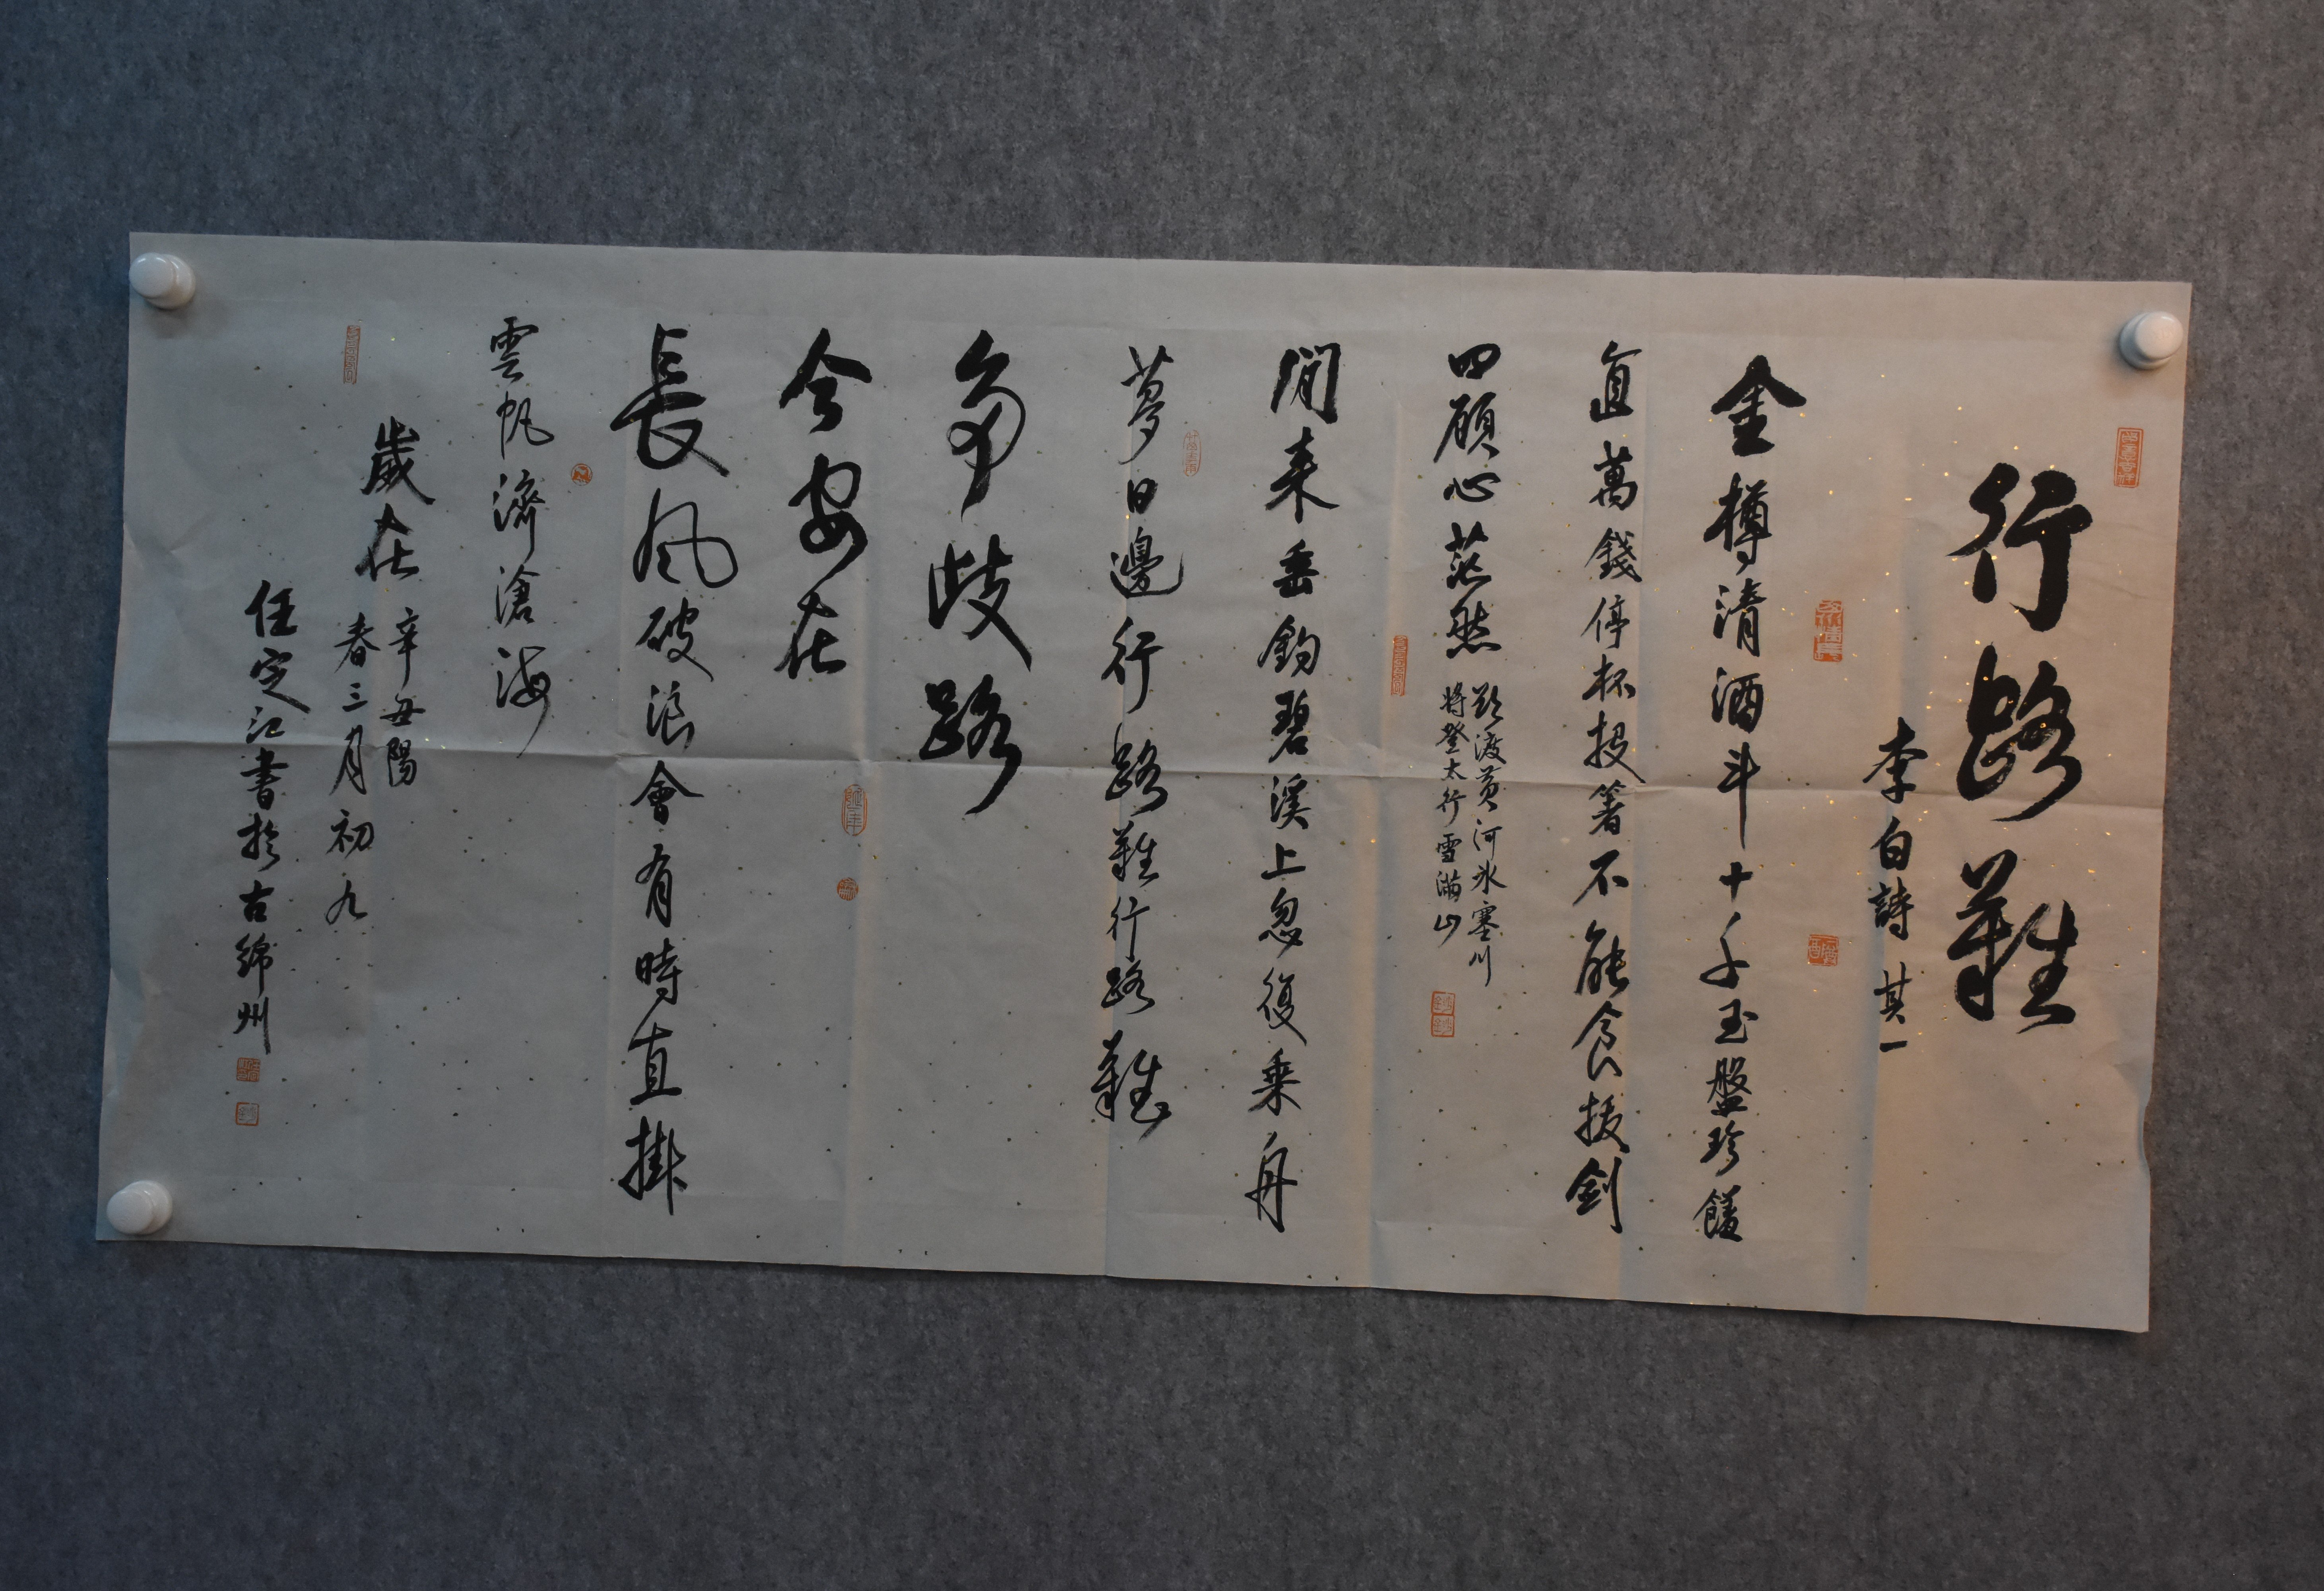 行路難
李白詩其一
金樽清酒斗十千玉盤珍饈
直萬錢停杯投箸不能食拔劍
四顧心茫然
欲渡黃河冰塞川
將登太行雪滿山
閒来垂釣碧溪上忽復乘舟
夢日邊行路難行路難
多歧路
今安在
長風破浪會有時直掛
雲帆濟滄海
歲在
辛丑陽
春三月初九
任定江書於古綿州